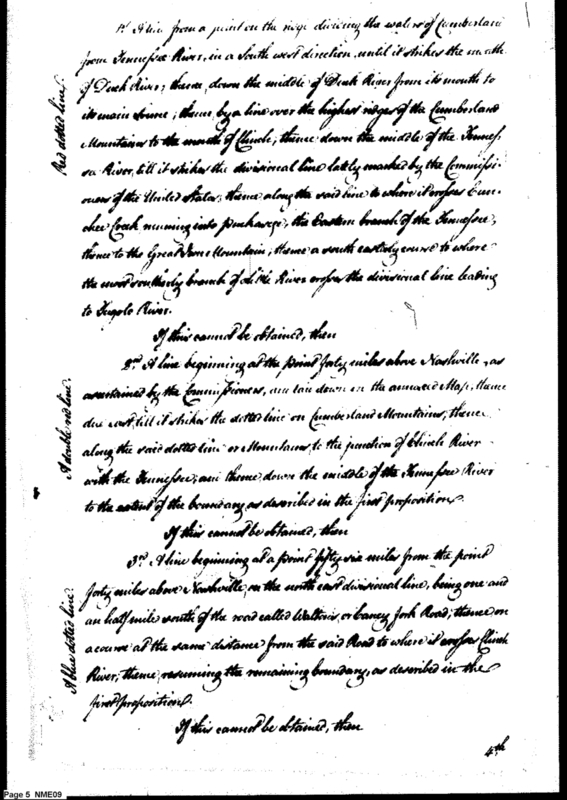 1st A line from a point on the ridge dividing the waters of Cumberland
from Tennessee River, in a South west direction, until it strikes the mouth
of Duck River; thence, down the middle of Duck River from its mouth to
its main source; thence, by a line over the highest ridges of the Cumberland
Mountains to the mouth of Clinch; thence down the middle of the Tennes-
see River, till it strikes the divisional line lately marked by the Commissi-
oners of the United States; thence along the said line to where it crosses
Creek running into, the Eastern branch of the Tennessee;
thence to the Great Mountain; thence a south easterly course to where
the most southerly branch of Little River crosses the divisional line leading
to Tugolo River.
Red dotted line.
If this cannot be obtained, then
2nd. A line beginning at the point forty miles above Nashville, as
ascertained by the Commissioners, and laid down on the annexed Map, thence
due east, till it strikes the dotted line on Cumberland Mountains; thence
along the said dotted line or Mountains, to the junction of Clinch River
with the Tennessee; and thence down the middle of the Tennessee River
to the extent of the boundary as described in the first proposition.
A double red line.
If this cannot be obtained, then
3rd. A line beginning at a point fifty six miles from the point
forty miles above Nashville, on the north east divisional line, being one and
an half mile south of the road called Walton's, or Caney Fork Road; thence on
a course at the same distance from the said Road to where it crosses Clinch
River; thence, resuming the remaining boundary, as described in the
first proposition.
A blue dotted line.
If this cannot be obtained, then
4th
Page 5 NME09